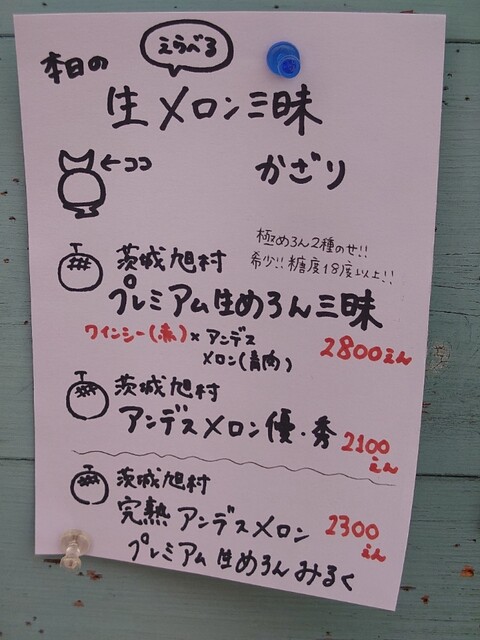 えらべる
本日の
生メロン三昧
←ココ
かざり
極めろん2種のせ!!
希少!!糖度18度以上!!
茨城旭村
プレミアム生めろん三昧
クインシー(赤)×アンデス
メロン(青肉)
2800えん
茨城旭村
アンデスメロン優・秀
2100
えん
茨城旭村
完熟アンデスメロン
2300
えん
プレミアム生めろんみるく